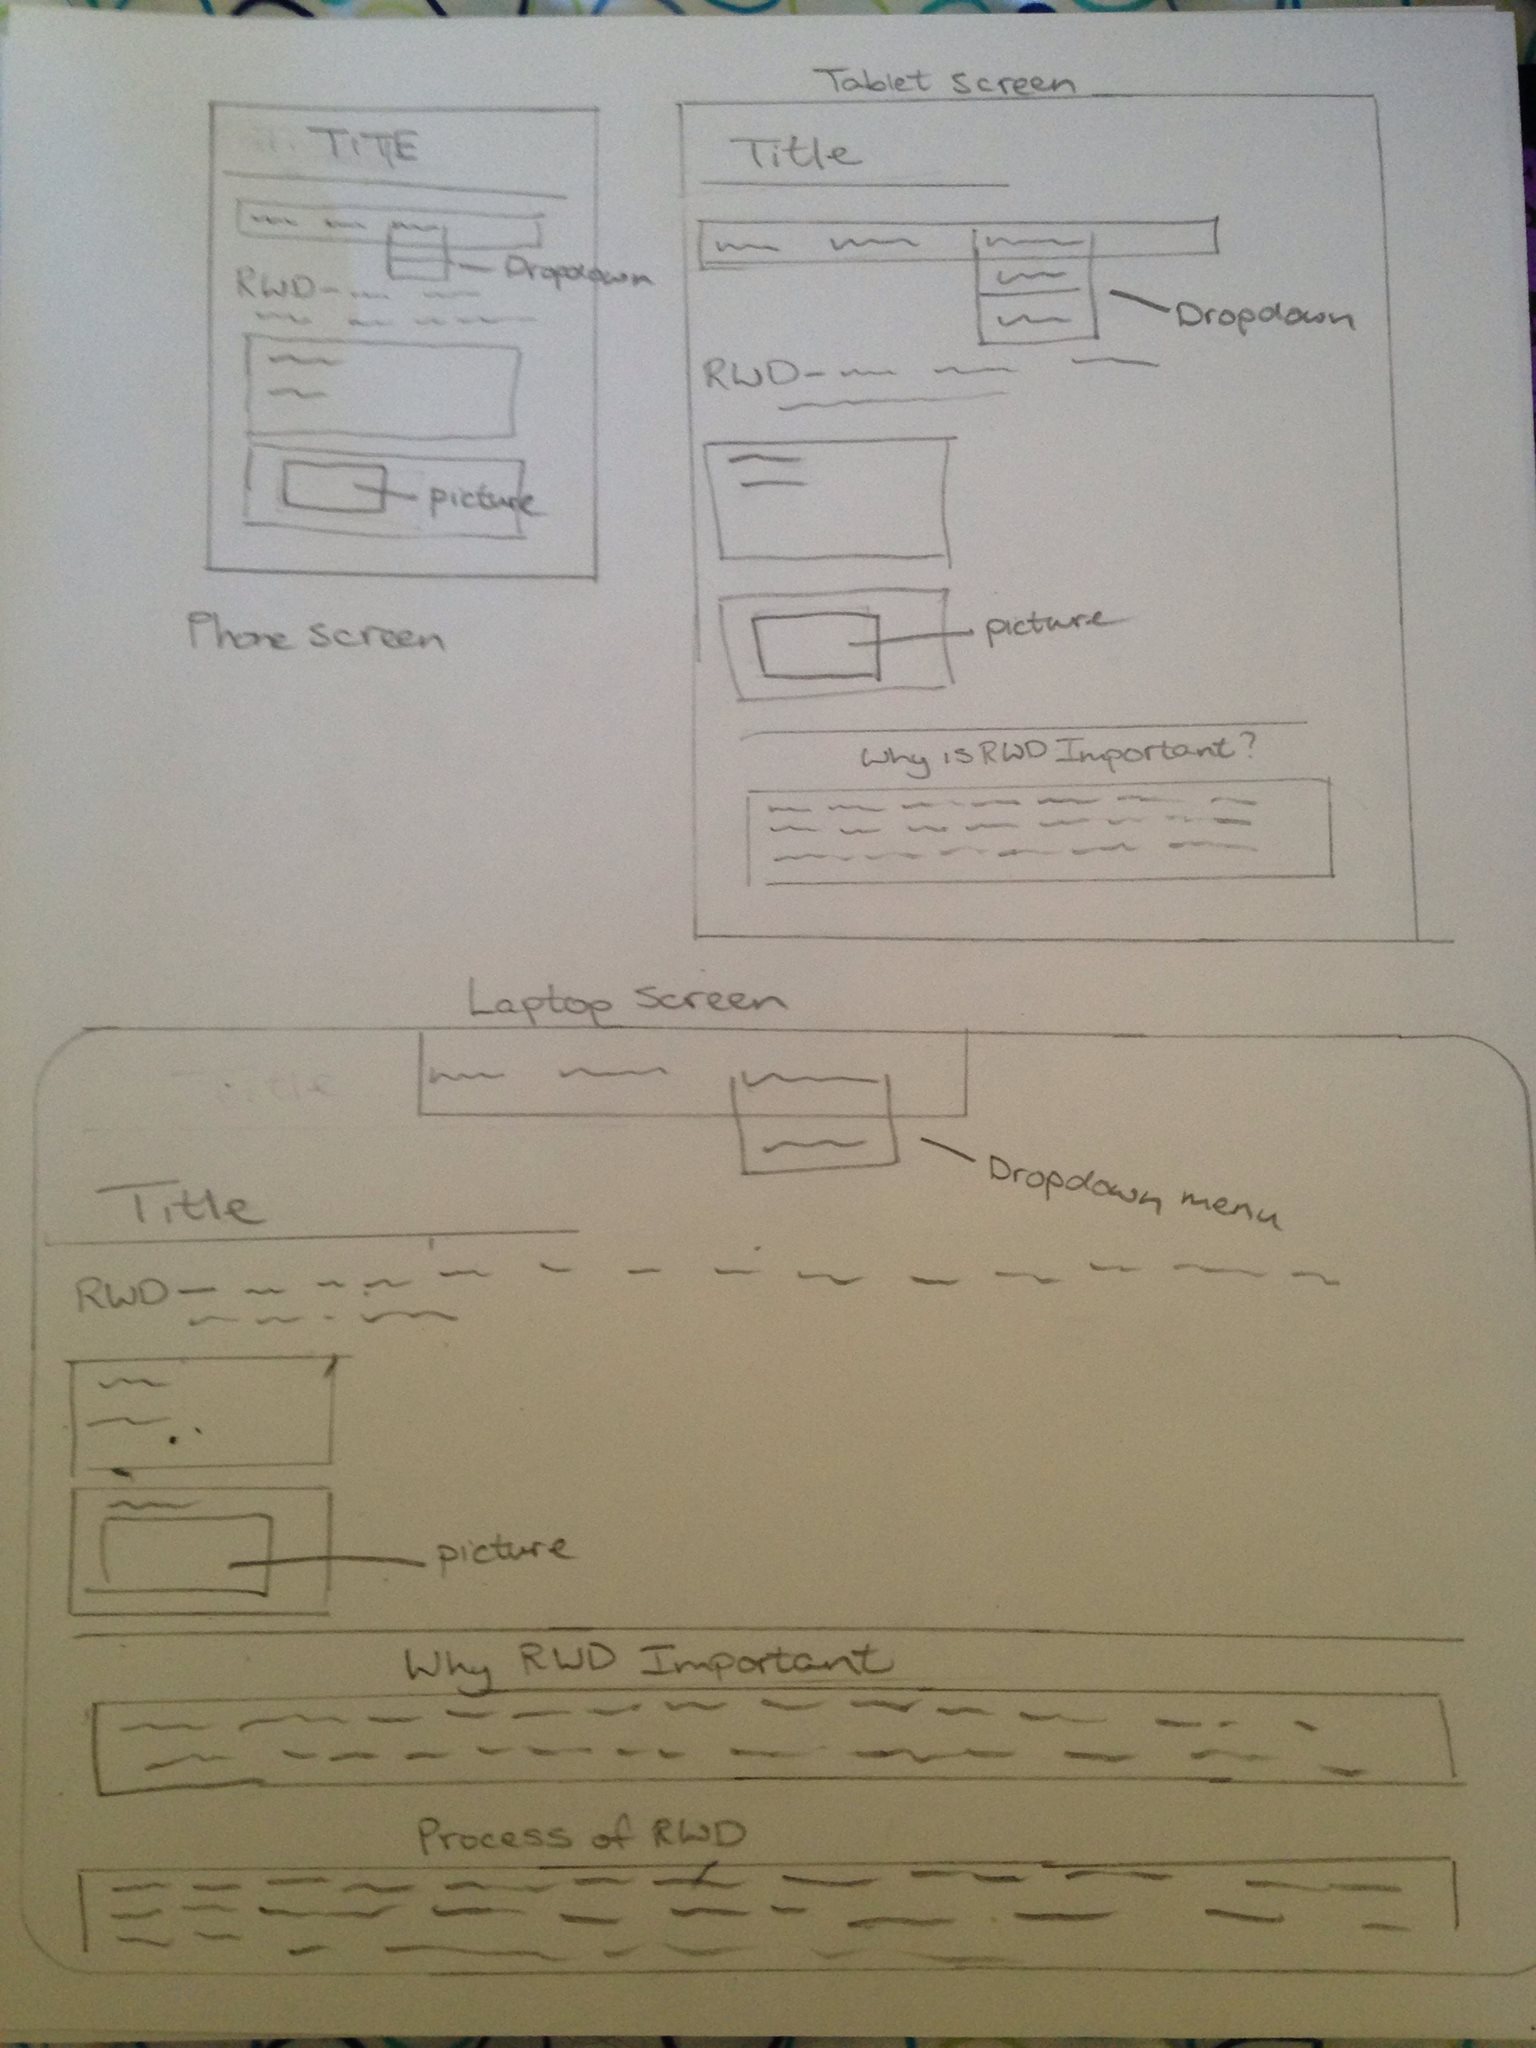 TITTE
Dropdown
RWD
picture
Phone screen
Tablet screen
Title
Dropdown
RWD
picture
Why is RWD Important?
Laptop screen
Title
Dropdown menu
Title
RWD
picture
Why RWD Important
Process of RWD